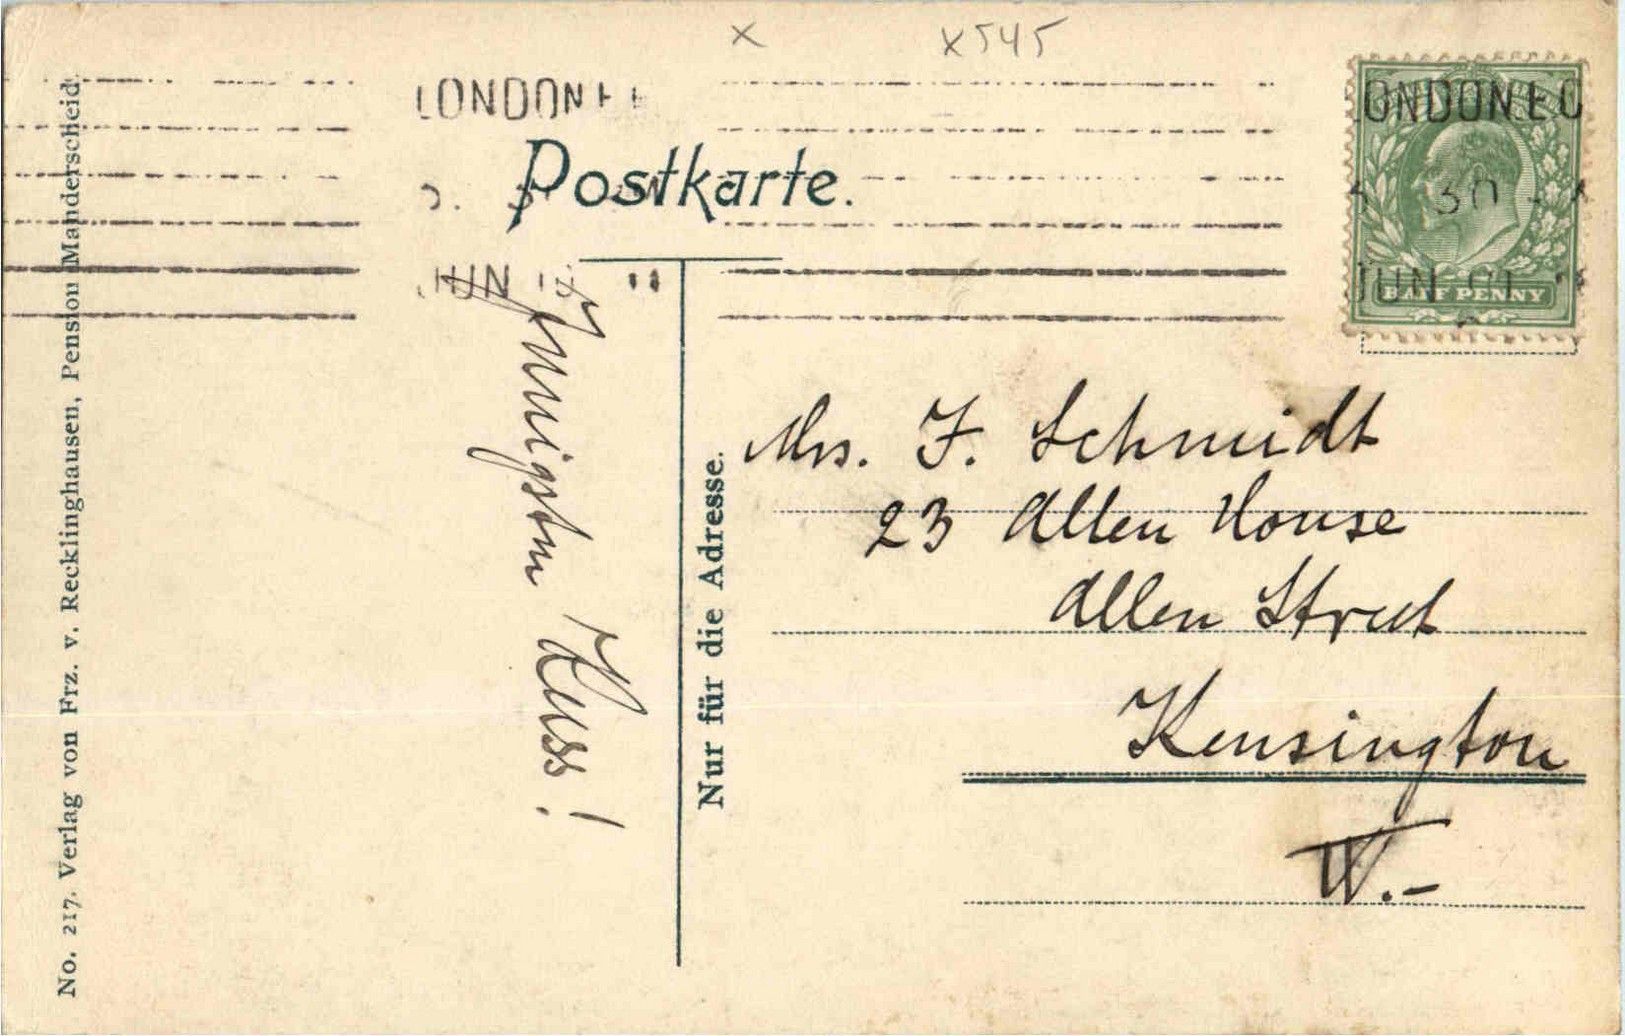 x x545
LONDON E
Postkarte.
JUN
ONDON.E.C
30
JUN 01
HALF PENNY
No. 217. Verlag von Frz. v. Recklinghausen, Pension Manderscheid.
Innigsten Kuss!
Nur für die Adresse.
Mrs. F. Schmidt
23 Allen House
Allen Street
Kensington
W.-